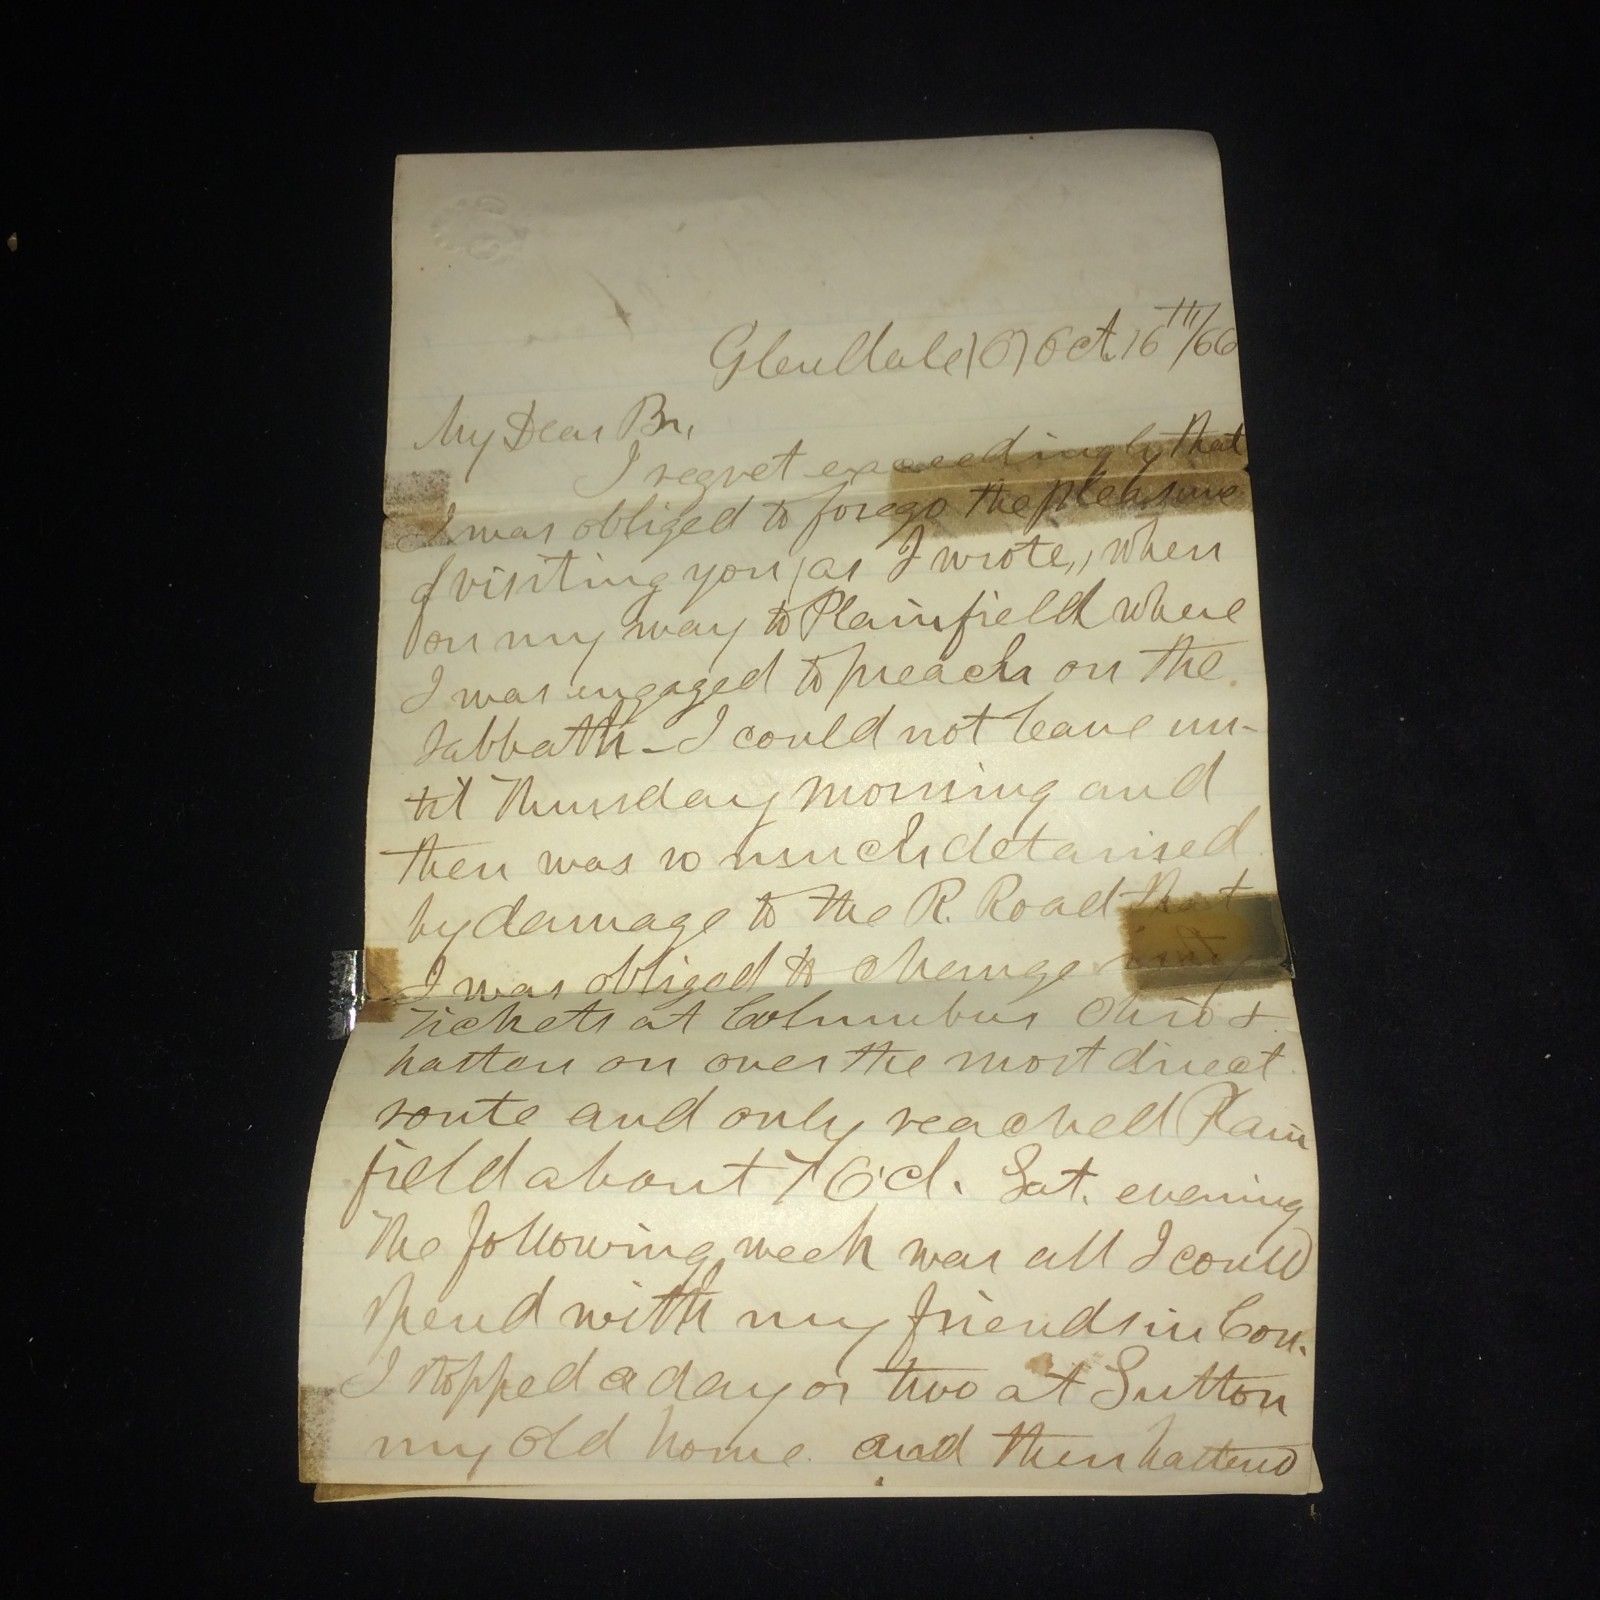 Glendale (O) Oct. 16th/66
My Dear Br,
I regret exceedingly that
I was obliged to forego the pleasure
of visiting you, as I wrote, when
on my way to Plainfield where
I was engaged to preach on the
Sabbath - I could not leave un-
til Thursday morning and
then was so much detained
by damage to the R. Road that
I was obliged to change my
tickets at Columbus Ohio &
hasten on over the most direct
route and only reached Plain
field about 7 O'cl. Sat. evening
The following week was all I could
spend with my friends in Con.
I stopped a day or two at Sutton
my old home and then hastend